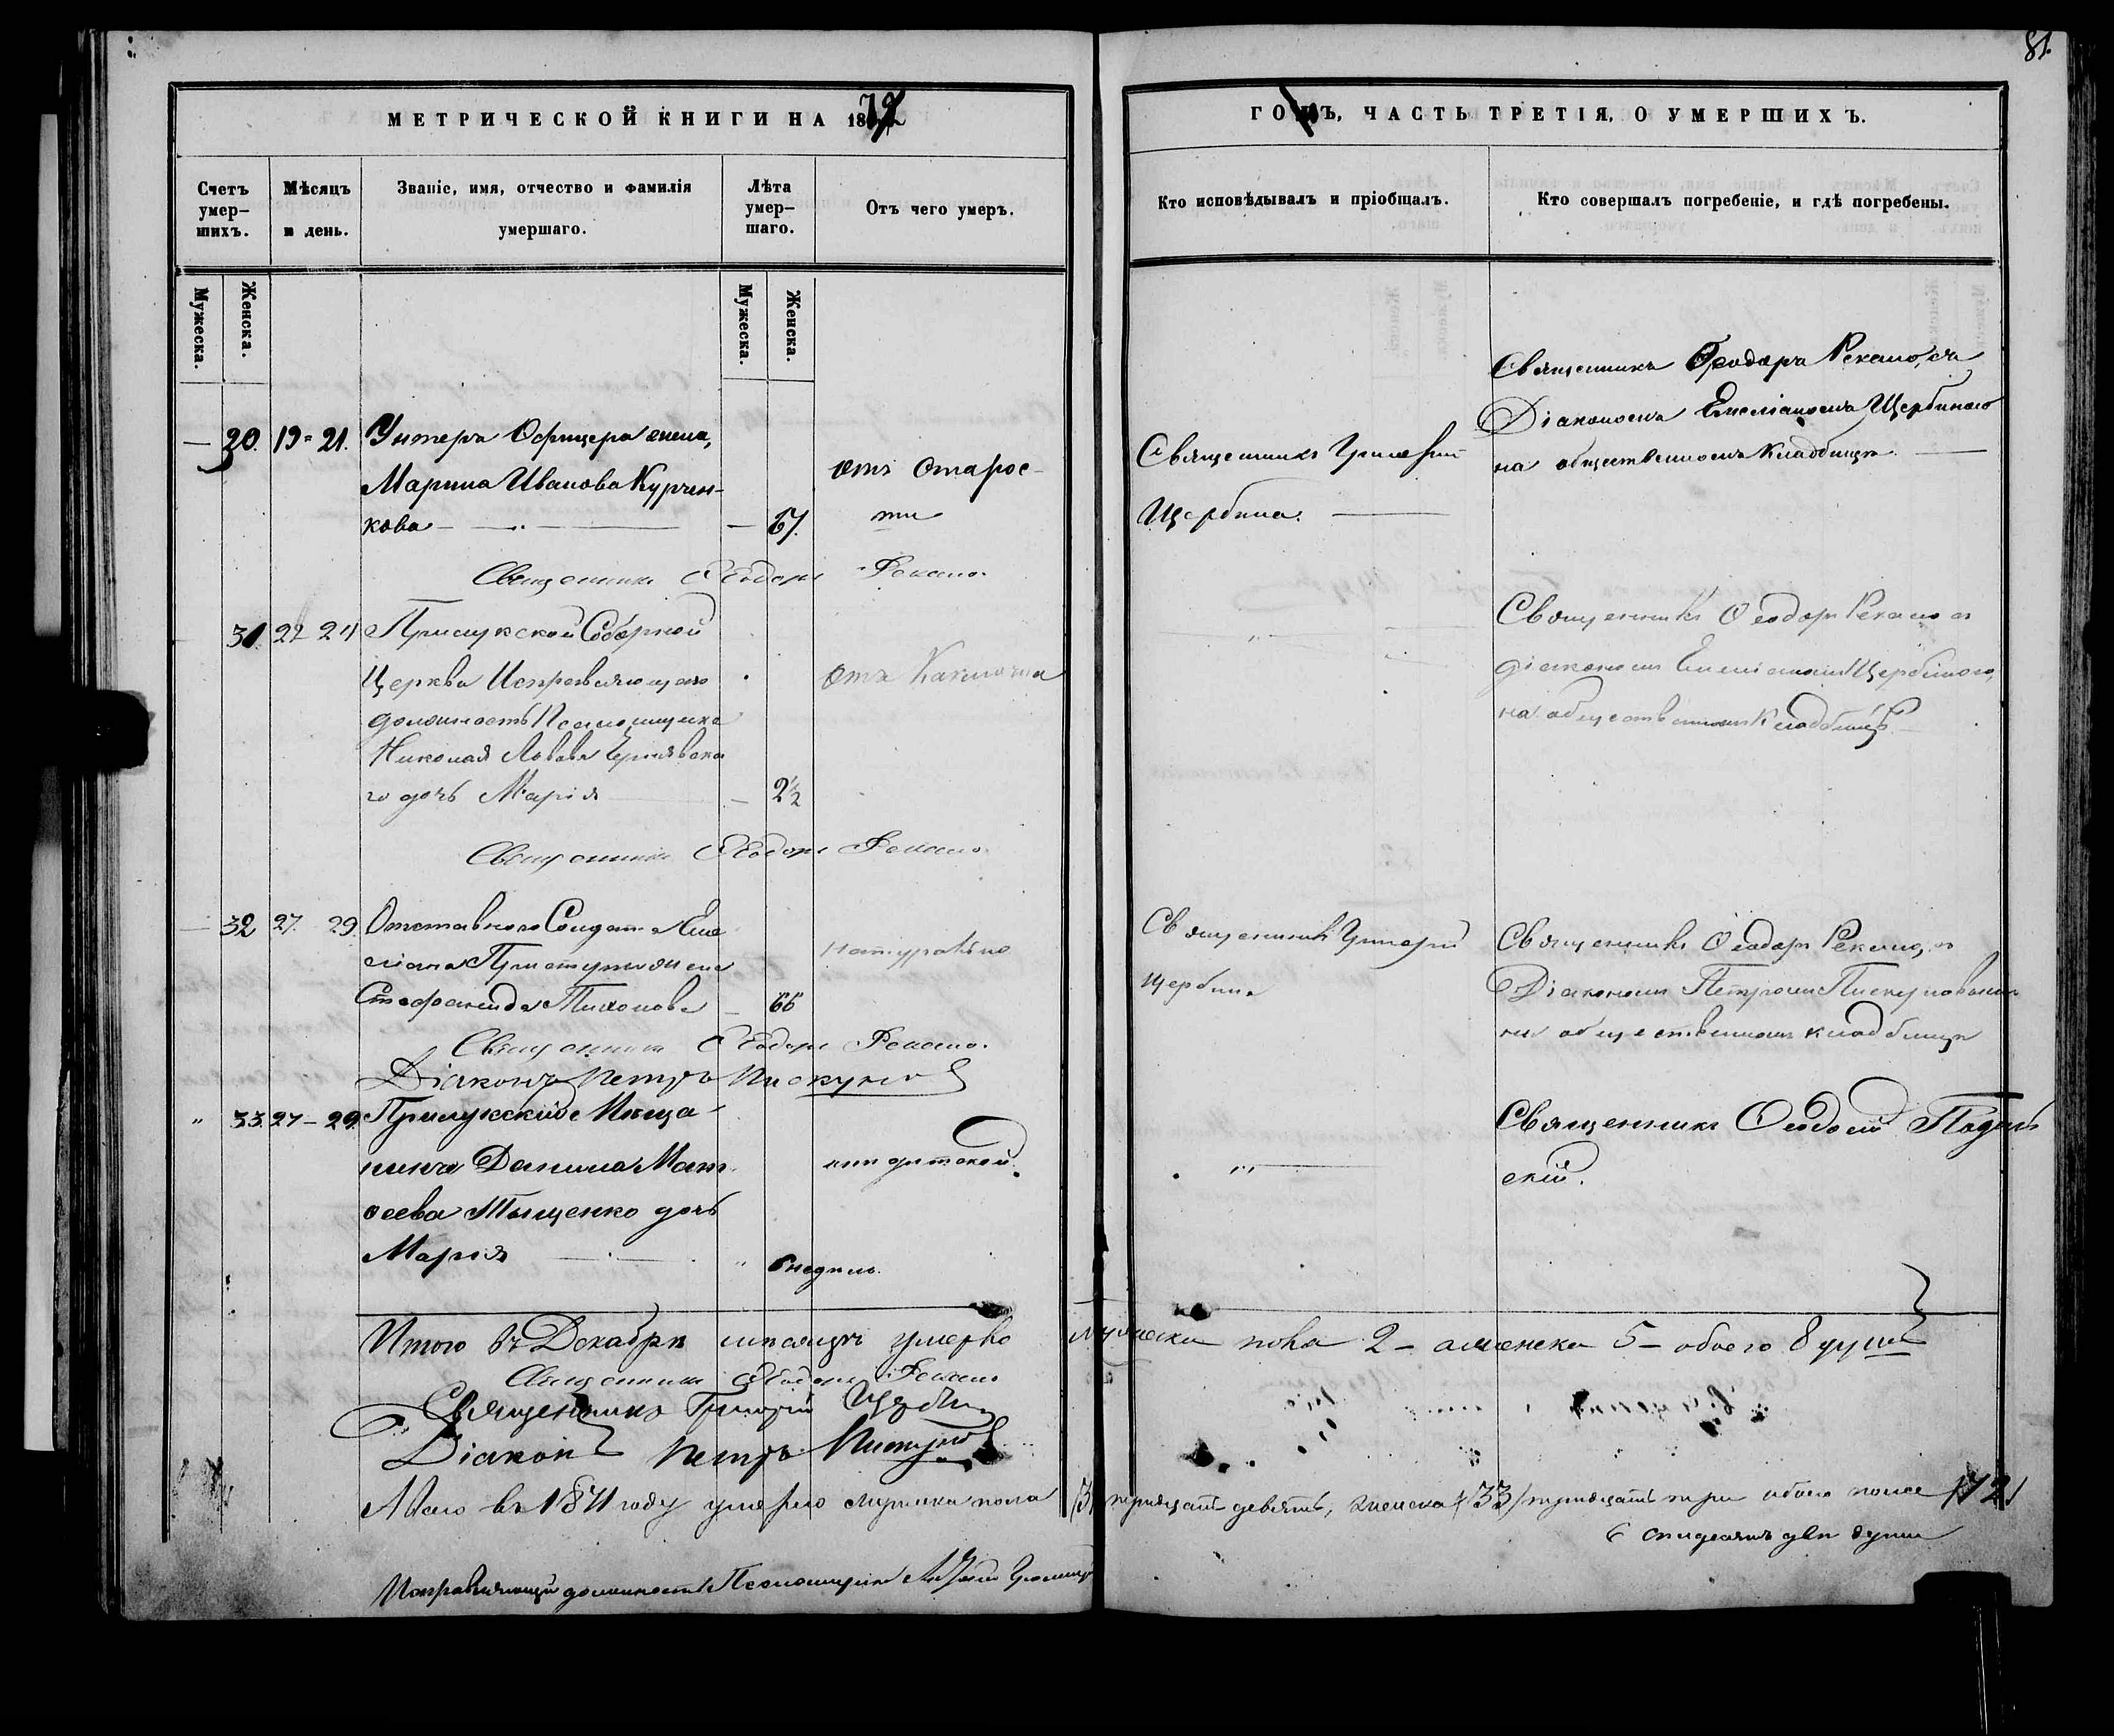 81.
МЕТРИЧЕСКОЙ КНИГИ НА 18
ГОДЪ, ЧАСТЬ ТРЕТІЯ, О УМЕРШИХЪ.
Счетъ умер-шихъ.
Мѣсяцъ и день.
Званіе, имя, отчество и фамилія умершаго.
Лѣта умер-шаго.
Отъ чего умеръ.
Кто исповѣдывалъ и пріобщалъ.
Кто совершалъ погребеніе, и гдѣ погребены.
Мужеска.
Женска.
Мужеска.
Женска.
30. 19 = 21. Унтеръ Офицера жена,
Марина Иванова Курчен-
кова — 67.
отъ старос-
ти
Священникъ Григорій
Щербина.
Священникъ Ѳеодоръ Рекало, съ
Діакономъ Емеліаномъ Щербиною
на общественномъ кладбищѣ.
Священникъ Ѳеодоръ Рекало.
31. 22 24 Прилукской Соборной
Церкви Исправляющаго
должность Псаломщика
Николая Львова Чернявска
го дочь Марія — 2½
отъ Каклюша
Священникъ Ѳеодоръ Рекало съ
діакономъ Емеліаномъ Щербиною,
на общественномъ кладбищѣ.
Священникъ Ѳеодоръ Рекало.
32 27. 29. Отставного Солдата Еме
ліана жена
Стефанида Тихонова — 66
Натурально
Священникъ Григорій
Щербина
Священникъ Ѳеодоръ Рекало, съ
Діакономъ Петромъ Пискуновымъ
на общественномъ кладбищѣ
Священникъ Ѳеодоръ Рекало.
Діаконъ Петръ Пискуновъ
" 33. 27 – 29. Прилукскаго Мѣща-
нина Данила Мат
ѳеева Тыщенко дочь
Марія " 6 недѣль.
Священникъ Ѳеодосій
скій.
Итого въ Декабрѣ мѣсяцѣ умерло мужеска пола 2 – а женска 5 – обоего 8 душъ
Священникъ Ѳеодоръ Рекало
Священникъ Григорій Щербина
Діаконъ Петръ Пискуновъ
А всего въ 1871 году умерло мужеска пола тридцать девять, женска /33/ тридцать три обоего пола /72/
семидесять двѣ души
Исправляющій должность Псаломщика